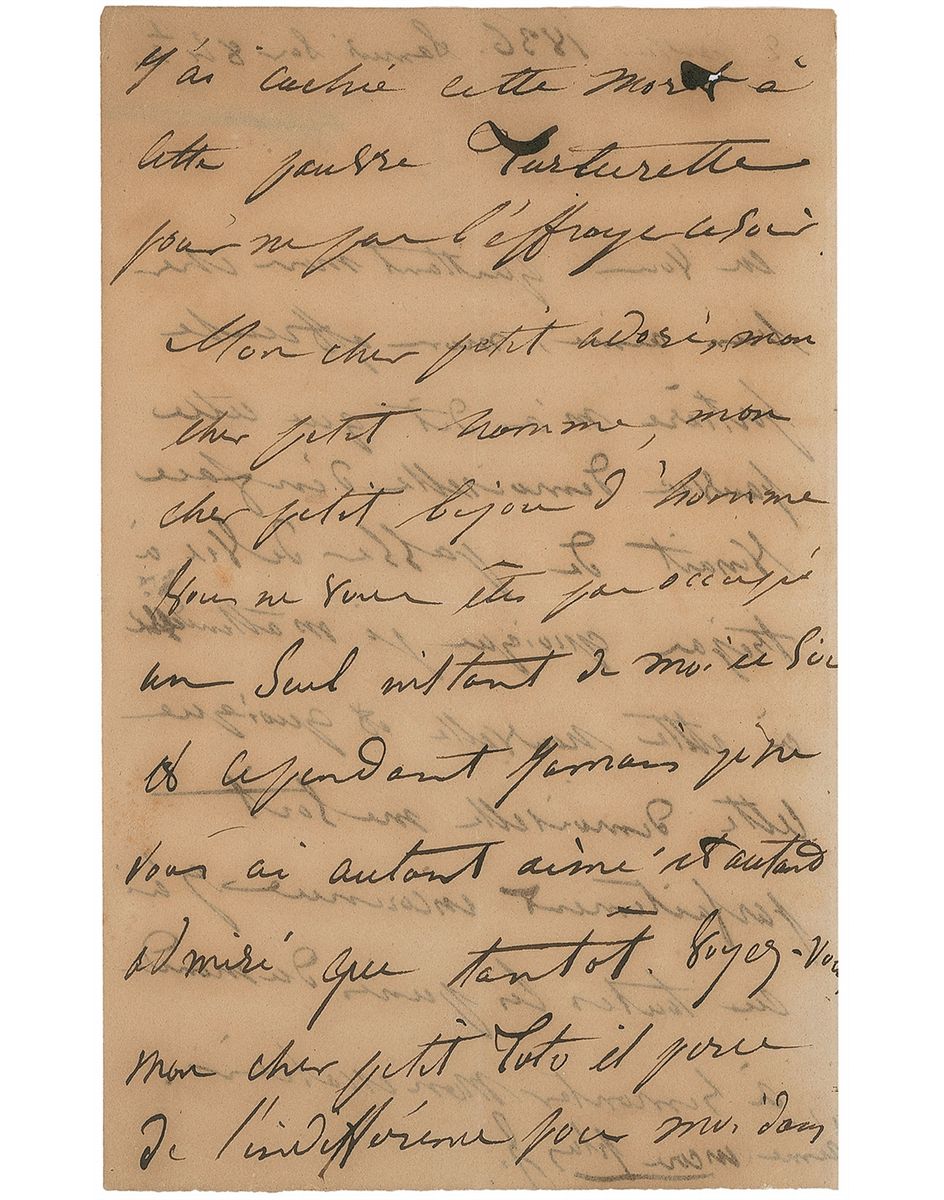 J'ai caché cette mort à
cette pauvre Turlurette
pour ne pas l'effrayer ce soir
Mon cher petit adoré, mon
cher petit homme, mon
cher petit bijou d'homme
Vous ne vous êtes pas occupé
un seul instant de moi ce soir
et cependant jamais je ne
vous ai autant aimé et autant
admiré que tantôt. Voyez-vous
mon cher petit Toto il perce
de l'indifférence pour moi dans